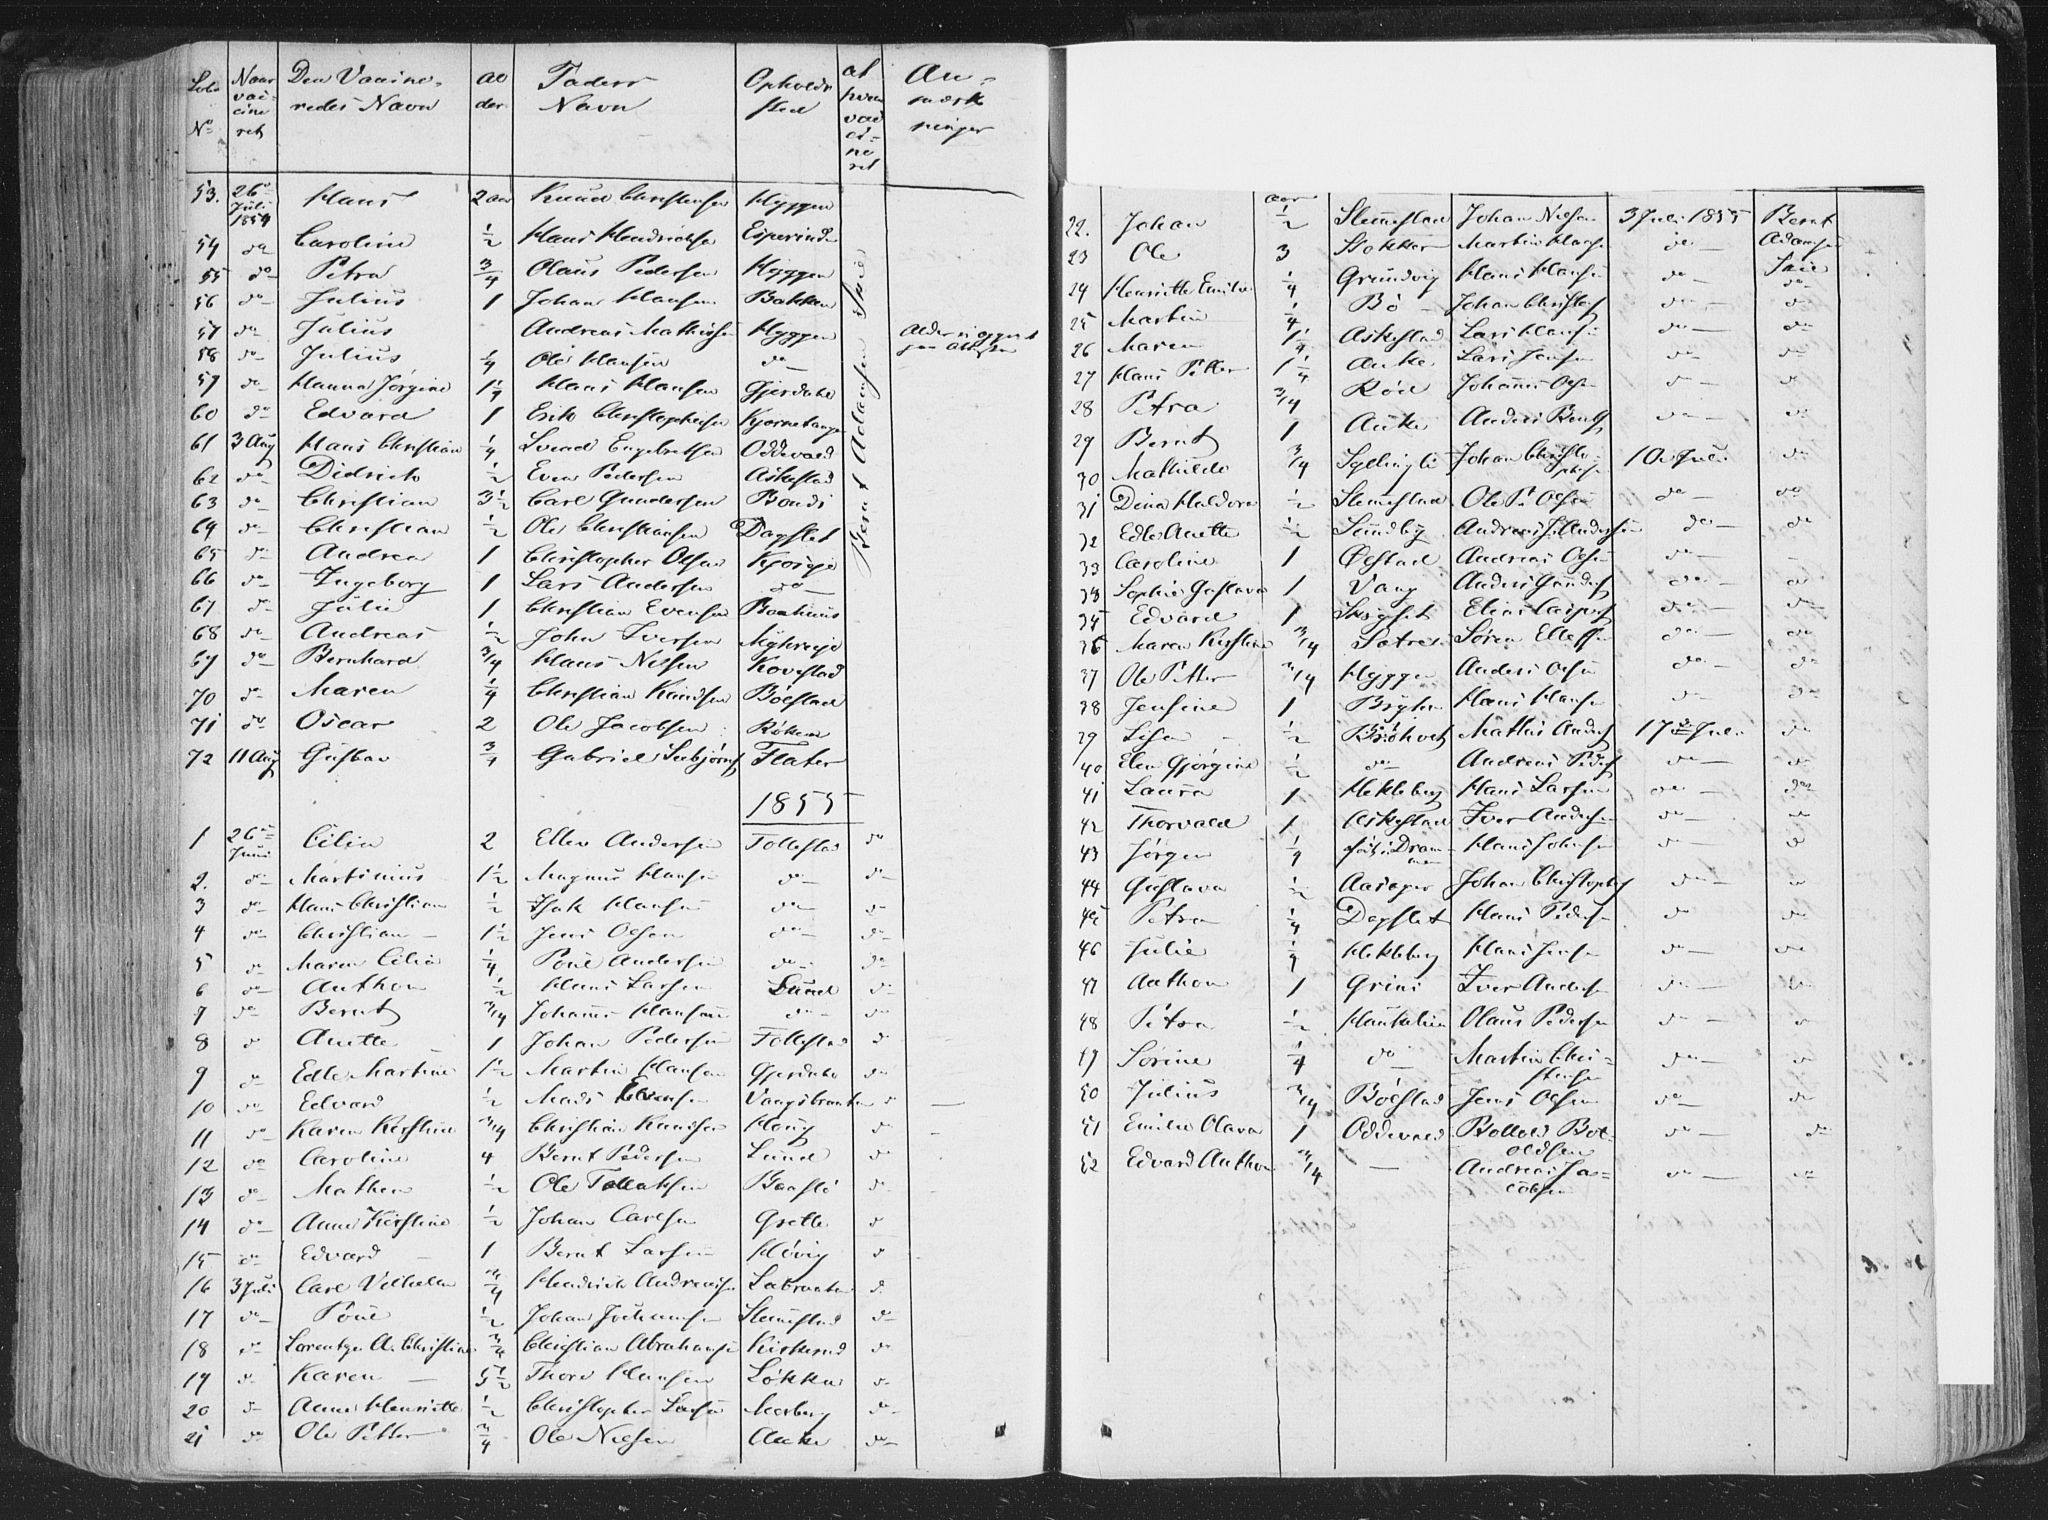 Lobe No | Naar vaccineret | Den Vaccineredes Navn | Alder | Faders Navn | Opholdssted | af hvem vaccineret | Anmærkninger
53. | 26de Juli 1854 | Hans | 2 aar | Knud Christensen | Hyggen
54 | do | Caroline | 1/2 | Hans Hendrichsen | Esperinden
55 | do | Petra | 3/4 | Olaus Pedersen | Hyggen
56 | do | Julius | 1 | Johan Hansen | Bakken
57 | do | Julius | | Andreas Mathisen | Hyggen | | Alder ei opgivet
58 | do | Julius | 1/4 | Ole Hansen | do
59 | do | Hanna Jørgine | 1 1/4 | Hans Hansen | Gjerdahl
60 | do | Edvard | 1 | Erik Christophersen | Kjørnetangen
61 | 3 Aug | Hans Christian | 1/4 | Svend Engebretsen | Oddevald
62 | do | Didrik | 1/2 | Even Pedersen | Askestad
63 | do | Christian | 3 1/2 | Carl Gundersen | Bondi
64 | do | Christian | 1/2 | Ole Christiansen | Dagslet
65 | do | Andrea | 1 | Christopher Olsen | Kjosge
66 | do | Ingeborg | 1 | Lars Andersen | do
67 | do | Julie | 1 | Christian Evensen |
68 | do | Andreas | 1/2 | John Iversen | Myhreeje
69 | do | Bernhard | 3/4 | Hans Nilsen | Kovestad
70 | do | Maren | 1/4 | Christian Knudsen | Bölstad
71 | do | Oscar | 2 | Ole Jacobsen | Röken
72 | 11 Aug | Gustav | 3/4 | Gabriel Seebjörns | Flater
Bernt Adamsen Skie
1855
1 | 26de Juni | Cilia | 2 | Ellev Andersen | Follestad | do
2. | do | Martinius | 1 1/2 | Magnus Hansen | do | do
3 | do | Hans Christian | 1/2 | Isak Hansen | do | do
4 | do | Christian | 1 1/2 | Jens Olsen | do | do
5 | do | Maren Cilia | 1/4 | Poul Andersen | do | do
6 | do | Anthon | 1/2 | Hans Larsen | Lund | do
7 | do | Bernt | 3/4 | Johannes Hansen | do | do
8 | do | Anette | 1 | Johan Pedersen | Follestad | do
9 | do | Edle Martine | 1 1/2 | Martin Hansen | Gjerdahl | do
10 | do | Edvard | 1/2 | Mads Evensen | Vangsbraaten | do
11 | do | Karen Kirstine | 3/4 | Christian Knudsen | Houg | do
12 | do | Caroline | 4 | Bernt Pedersen | Lund | do
13 | do | Mathea | 1/2 | Ole Tollaksen | Baaslö | do
14 | do | Anne Kirstine | 1/2 | Johan Carlsen | Grette | do
15 | do | Edvard | 1 | Bernt Larsen | Hövig | do
16 | 3 Juli | Carl Vilhelm | 3/4 | Hendrik Andreasen | Labraaten | do
17 | do | Poul | 1/2 | Johan Jochumsen | Slemestad | do
18 | do | Lorentze A. Christine | 3/4 | Christian Abrahamsen | Kirkerud | do
19 | do | Karen | 5 1/2 | Thore Hansen | Lökka | do
20 | do | Anne Henriette | 1/2 | Christopher Larsen | Morberg | do
21 | do | Ole Petter | 3/4 | Ole Nilsen | Auke | do
22. | Johan | aar 1/2 | Slemestad | Johan Nilsen | 3 Juli 1855 | Bernt
23 | Ole | 3 | Stokker | Martin Hansen | do | Adamsen
24 | Henriette Emilie | 1/4 | Grundvig | Hans Hansen | do | Skie do
25 | Martin | 1/4 | Bö | Johan Christofs | do | do
26 | Maren | 1 1/4 | Askestad | Lars Hansen | do | do
27 | Hans Petter | 1 1/4 | Auke | Lars Jensen | do | do
28 | Petra | 3/4 | Röd | Johannes Olsen | do | do
29 | Bernt | 1 | Auke | Anders Bents | do | do
30 | Mathilde | 3/4 | Syllingli | Johan Christophs | 10de Juli | do
31 | Dina Haldora | 1/2 | Slemestad | Ole P. Olsen | do | do
32 | Edle Anette | 1/2 | Sundby | Andreas J. Andersen | do | do
33 | Caroline | 1 | Ølstad | Andreas Olsen | do
34 | Sophie Gustava | 1 | Vang | Anders Gunders | do | do
35 | Edvard | 1 | | Elias Caspers | do | do
36 | Maren Kirstine | 3/4 | Sætre | Sören Ellefsen | do | do
37 | Ole Petter | 3/4 | Hyggen | Anders Olsen | do | do
38 | Jensine | 1 | | Hans Hansen | do | do
39 | Lisa | 1/2 | Bröholt | Mathis Anders | 17de Juli | do
40 | Elen Gjørgine | 1/2 | do | Andreas Peders | do | do
41 | Laura | 1 | Hekleberg | Hans Larsen | do | do
42 | Thorvald | 1 | Askestad | Iver Andersen | do | do
43 | Jørgen | 1/4 | födt i Drammen | Hans Johnsen | do | do
44 | Gustava | 1/2 | Aasager | Johan Christophs | do | do
45 | Petra | 1/4 | Dagslet | Hans Pedersen | do | do
46 | Julie | 1/4 | Hekleberg | Hans Jensen | do | do
47 | Anthon | 1 | Grini | Iver Andersen | do | do
48 | Petra | 1/2 | Haukelien | Olaus Pedersen | do | do
49 | Sørine | 1/4 | do | Martin Christensen | do | do
50 | Julius | 3/4 | Bölstad | Jens Olsen | do | do
51 | Emilie Olava | 1 | Oddevald | Bottold Botoldsen | do | do
52 | Edvard Anthon | 3/4 | — | Andreas Jacobsen | do | do